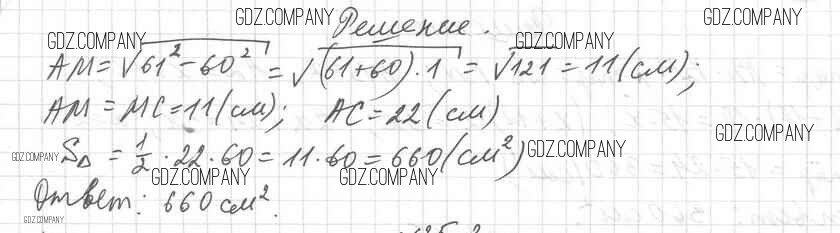 GDZ.COMPANY GDZ.COMPANY GDZ.COMPANY
Решение.
GDZ.COMPANY GDZ.COMPANY
AM = √(61² − 60²) = √((61+60)·1) = √121 = 11 (см);
AM = MC = 11 (см); AC = 22 (см)
GDZ.COMPANY
GDZ.COMPANY S△ = 1/2 · 22 · 60 = 11 · 60 = 660 (см²) GDZ.COMPANY
GDZ.COMPANY GDZ.COMPANY
Ответ: 660 см².
GDZ.COMPANY